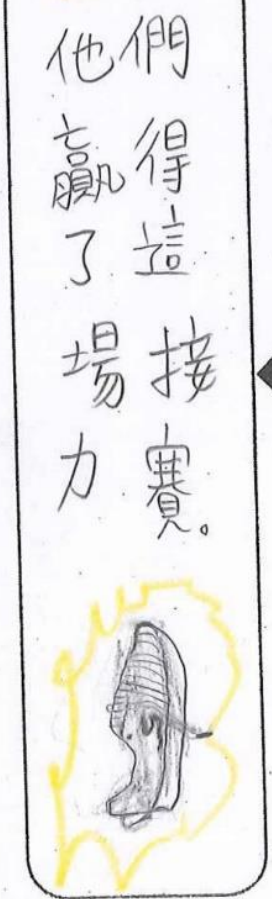 他們
贏得
了這
場接
力賽。